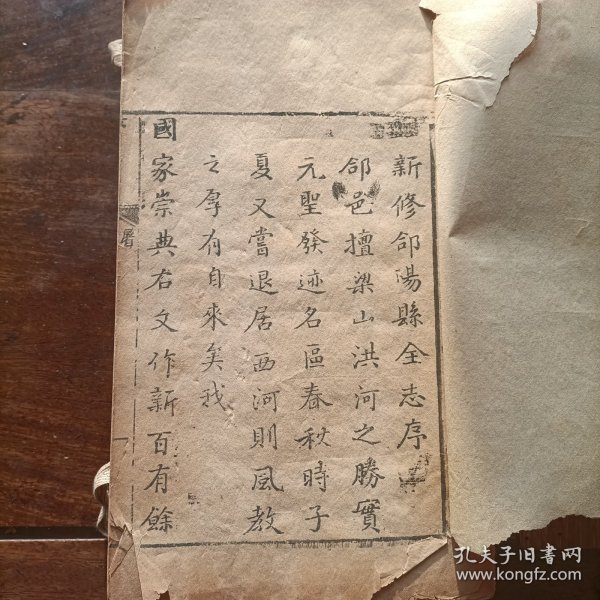 新修郃陽縣全志序
郃邑擅梁山洪河之勝實
元聖發迹名區春秋時子
夏又嘗退居西河則風教
之厚有自來矣我
國家崇典右文作新百有餘
孔夫子旧书网
www.kongfz.com